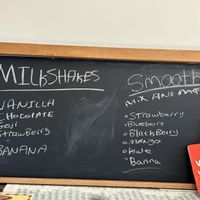 MILKSHAKES
VANILLA
CHOCOLATE
Goji
Strawberry
BANANA
Smooth
MIX AND
Strawberry
Blueberry
BlackBerry
mango
Kale
Banna